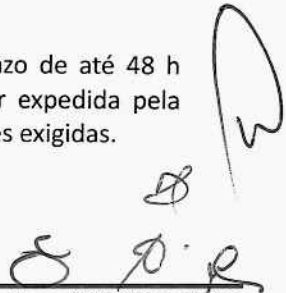 zo de até 48 h
r expedida pela
es exigidas.